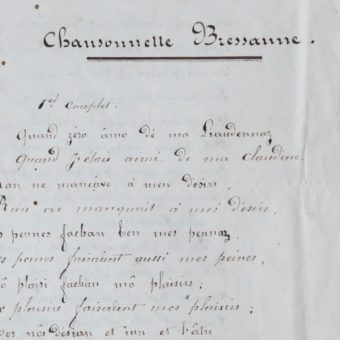 Chansonnelle Bressanne.
1er Couplet.
Quand zéro âmo dé ma
Quand j'étais aimé de ma claudine
ne mancave à meu désirs.
Rien ne manquait à mes désirs,
pennes fachan ben mes pennaz
peines faisaient aussi mes peines,
plaisi fachan mô plaisirs;
plaisirs faisaient mes plaisirs;
nôs désian et ian et l'âtre